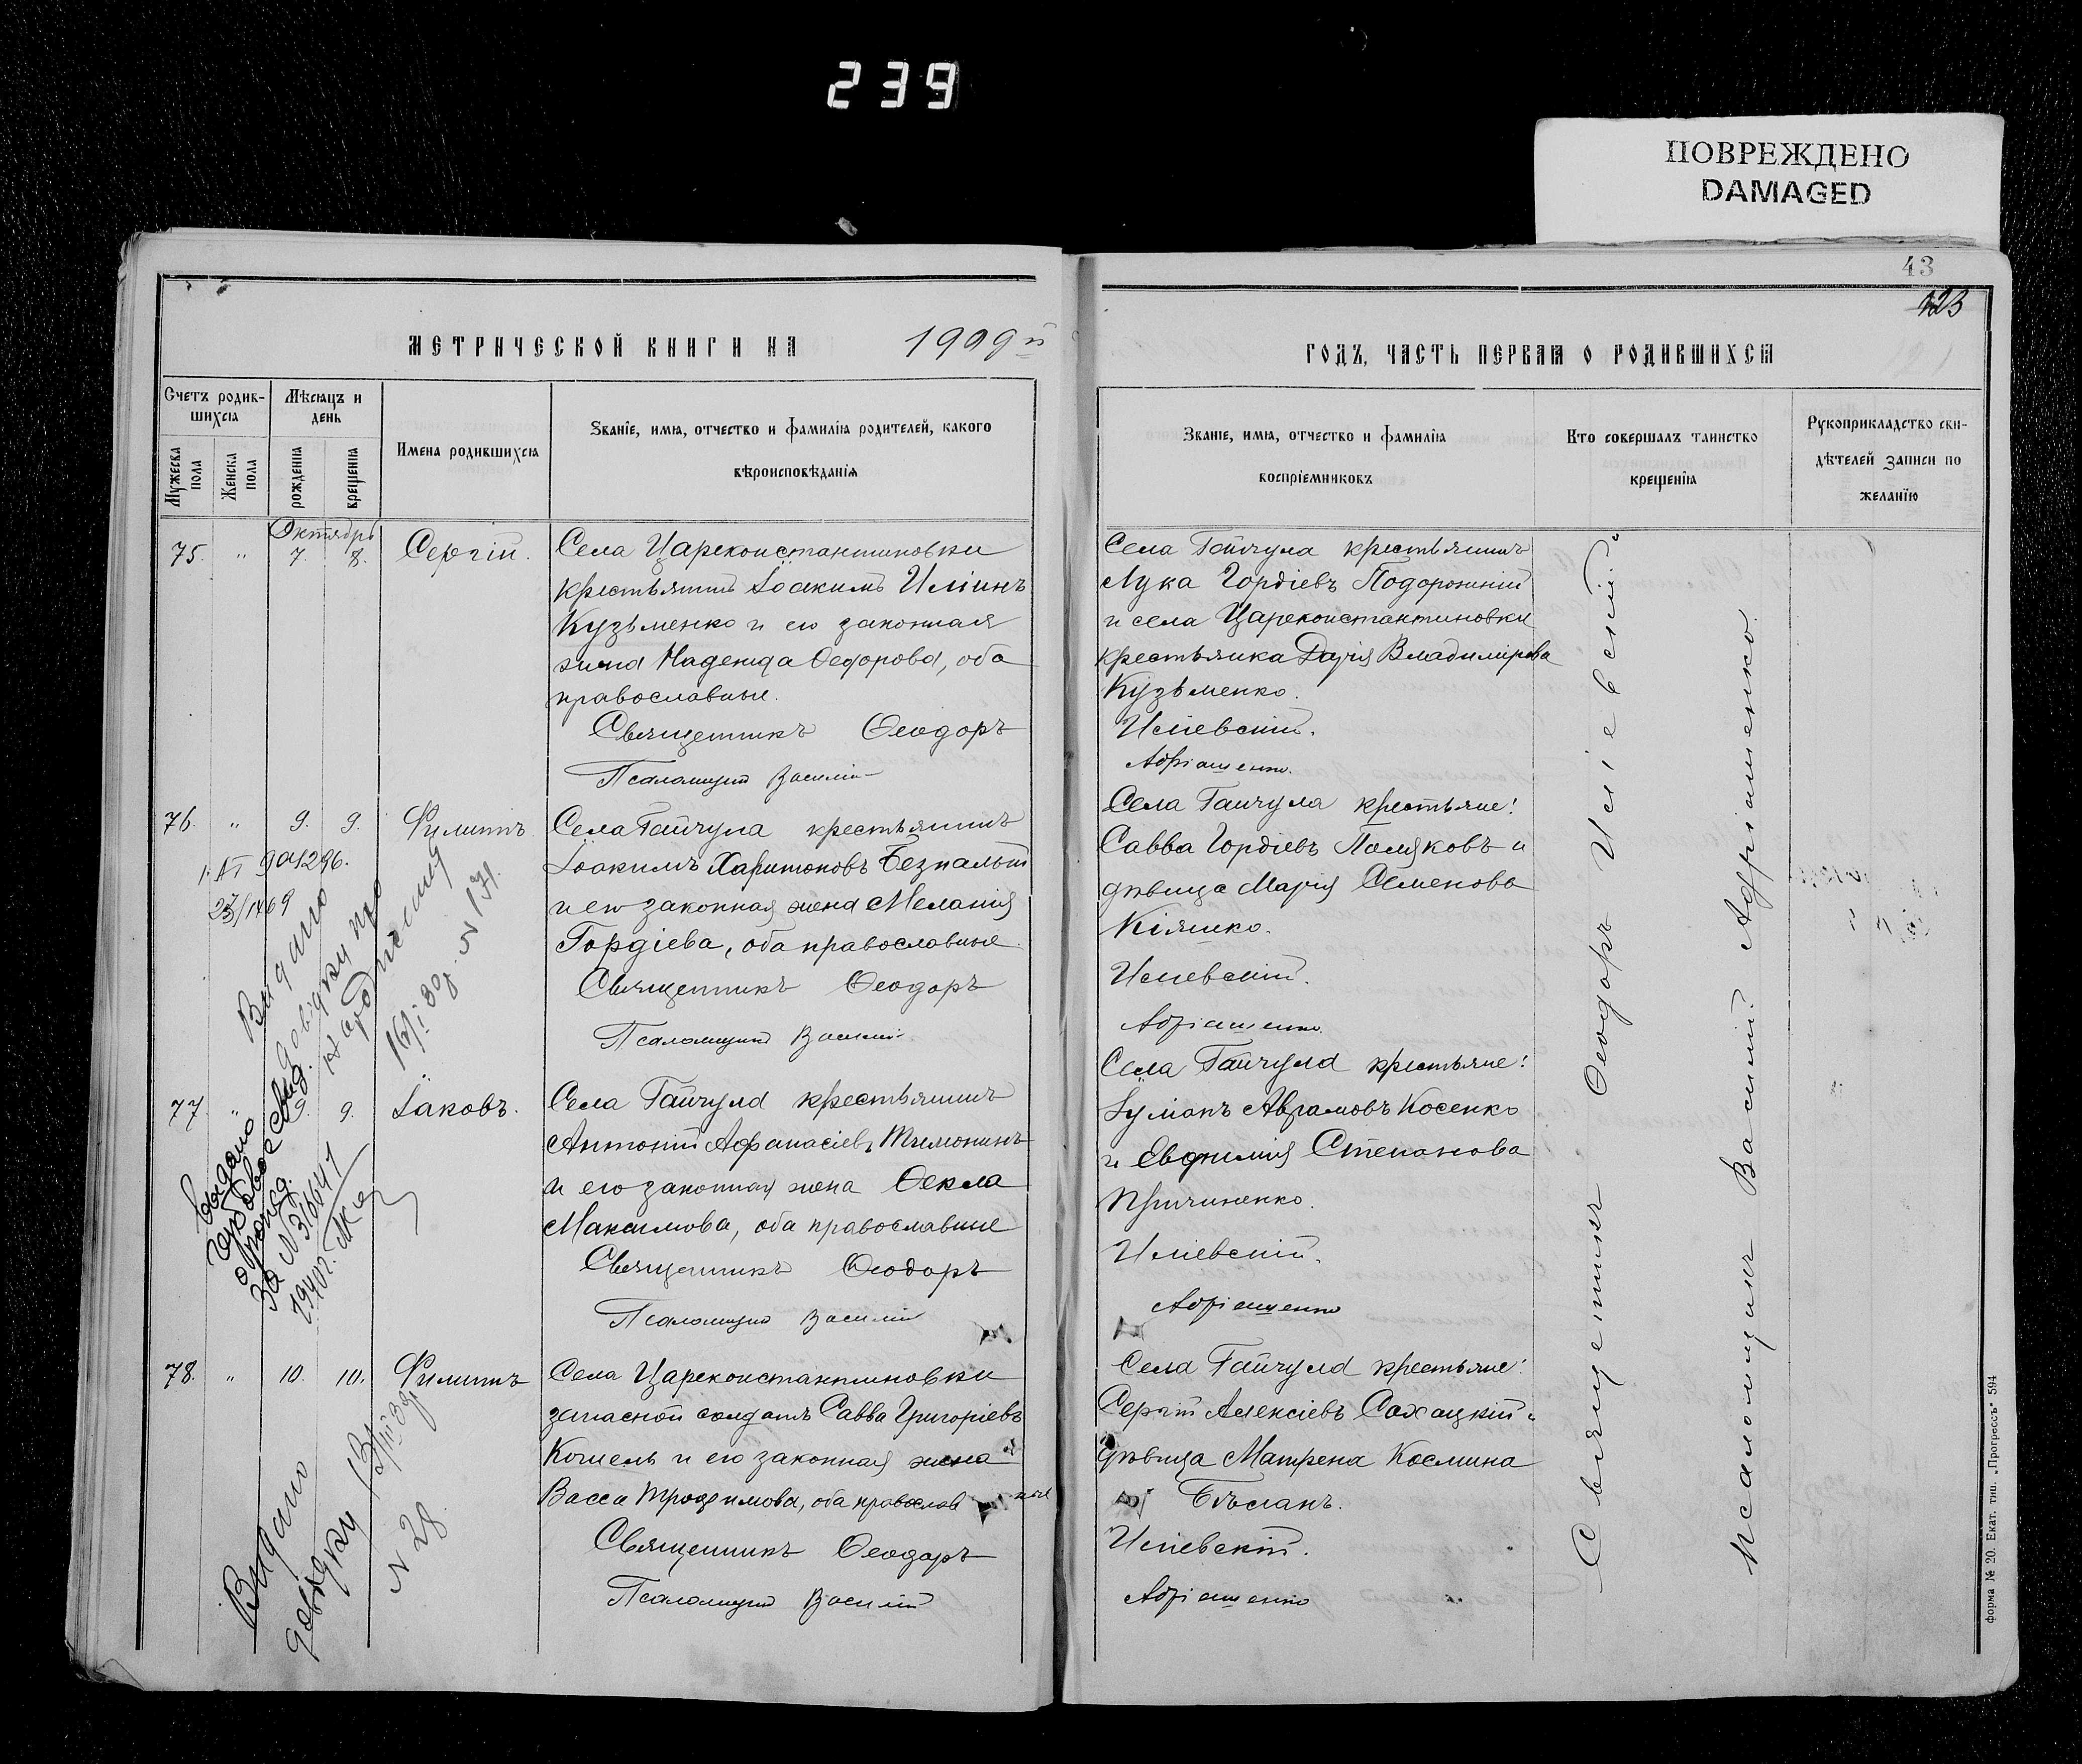 239
ПОВРЕЖДЕНО
DAMAGED
МЕТРИЧЕСКОЙ КНИГИ НА 1909й
Счетъ родив-
шихся
Мѣсяцъ и
день
Мужеска
пола
Женска
пола
рожденія
крещенія
Имена родившихся
Званіе, имя, отчество и фамилія родителей, какого
вѣроисповѣданія
Октябрь
75. " 7. 8. Сергій.
Села Цареконстантиновки
крестьянинъ Іоакимъ Иліинъ
Кузьменко и его законная
жена Надежда Ѳедорова, оба
православные.
Священникъ Ѳеодоръ
Псаломщикъ Василій
76. " 9. 9. Филиппъ
Села Гайчула крестьянинъ
Іоакимъ Харитоновъ Безпалый
и его законная жена Меланія
Гордіева, оба православные
Священникъ Ѳеодоръ
Псаломщикъ Василій
Видано
довідку про
народження
16/i 30р. N 171.
77 " 9. 9. Іаковъ.
Села Гайчула крестьянинъ
Антоній Аѳанасіевъ Тимонинъ
и его законная жена Ѳекла
Максимова, оба православные
Священникъ Ѳеодоръ
Псаломщикъ Василій
Выдано
гербовое свид.
о рожд.
за N 316641
1940г.
78. " 10. 10. Филиппъ
Села Цареконстантиновки
запасной солдатъ Савва Григоріевъ
Кошель и его законная жена
Васса Трофимова, оба православные
Священникъ Ѳеодоръ
Псаломщикъ Василій
Видано
довідку
N 28.
43
123
ГОДЪ, ЧАСТЬ ПЕРВАЯ О РОДИВШИХСЯ
Званіе, имя, отчество и фамилія
воспріемниковъ
Кто совершалъ таинство
крещенія
Рукоприкладство сви-
дѣтелей записи по
желанію
Села Гайчула крестьянинъ
Лука Гордіевъ Подорожній
и села Цареконстантиновки
крестьянка Дарія Владимірова
Кузьменко.
Иліевскій.
Адріашенко.
Села Гайчула крестьяне:
Савва Гордіевъ Поляковъ и
дѣвица Марія Семенова
Кіяшко.
Иліевскій.
Адріашенко
Села Гайчула крестьяне:
Іуліанъ Аврамовъ Косенко
и Евфимія Степанова
Причиненко.
Иліевскій.
Адріашенко
Села Гайчула крестьяне:
Сергій Алексіевъ Сахацкій и
дѣвица Матрена Космина
Бѣланъ.
Иліевскій.
Адріашенко
Священникъ Ѳеодоръ Иліевскій.
Псаломщикъ Василій Адріашенко.
форма № 20. Екат. тип. „Прогрессъ" 594